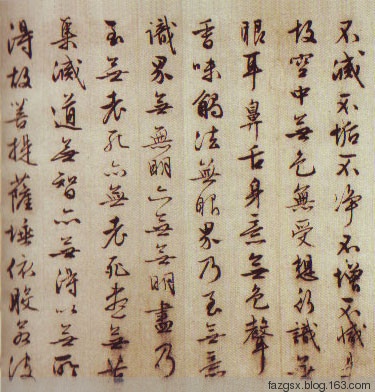 不滅不垢不净不增不減是
故空中無色無受想行識無
眼耳鼻舌身意無色聲
香味觸法無眼界乃至無意
識界無無明亦無無明盡乃
至無老死亦無老死盡無苦
集滅道無智亦無得以無所
得故菩提薩埵依般若波
fazgsx.blog.163.com